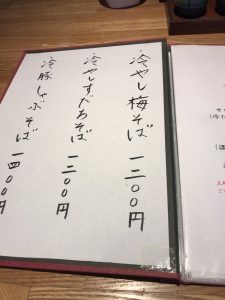 冷やし梅そば 一二〇〇円
冷やすだちそば 一三〇〇円
冷豚しゃぶそば 一四〇〇円